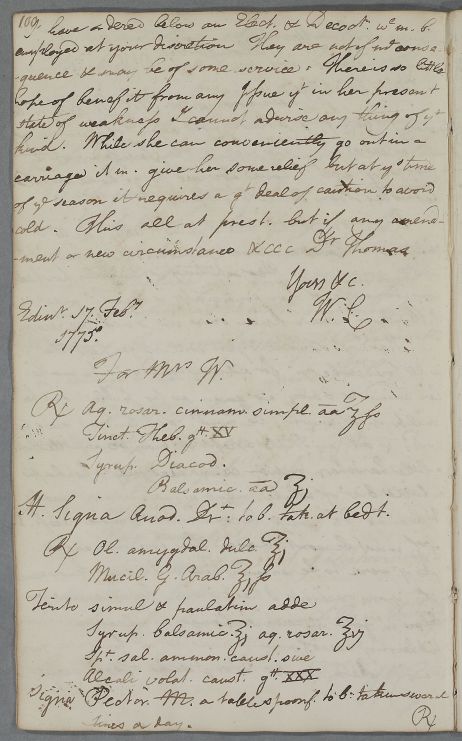 109.
have ordered below an Elect. & Decoct. wc. m. b.
employed at your discretion They are not of gt. conse-
quence & may be of some service. There is so little
hope of benefit from any Issue yt in her present
state of weakness I cannot advise any thing of yt
kind. While she can conveniently go out in a
carriage it m. give her some relief but at ys time
of ye season it requires a gt deal of caution to avoid
cold. This all at prest. but if any amend-
-ment or new circumstance &ccc Dr Thomas
Yours &c.
W. C.
Edinr. 17. Feby
1775.
For Mrs W.
℞ Aq. rosar. cinnam. simpl. āā ℥ſs
Tinct. Theb. gtt. XV
Syrup. Diacod.
Balsamic. āā ʒj
M. Signa Anod. Drt. to b. tak. at bedt.
℞ Ol. amygdal. dulc. ℥j
Mucil. G. Arab. ℥j ſs
Terito simul & paulatim adde
Syrup. balsamic. ℥j aq. rosar. ℥vj
Spt. sal. ammon. caust. sive
Alcali volat. caust. gtt. XXX
Signa Pector. M. a table spoonf. to b. taken several
times a day.
℞